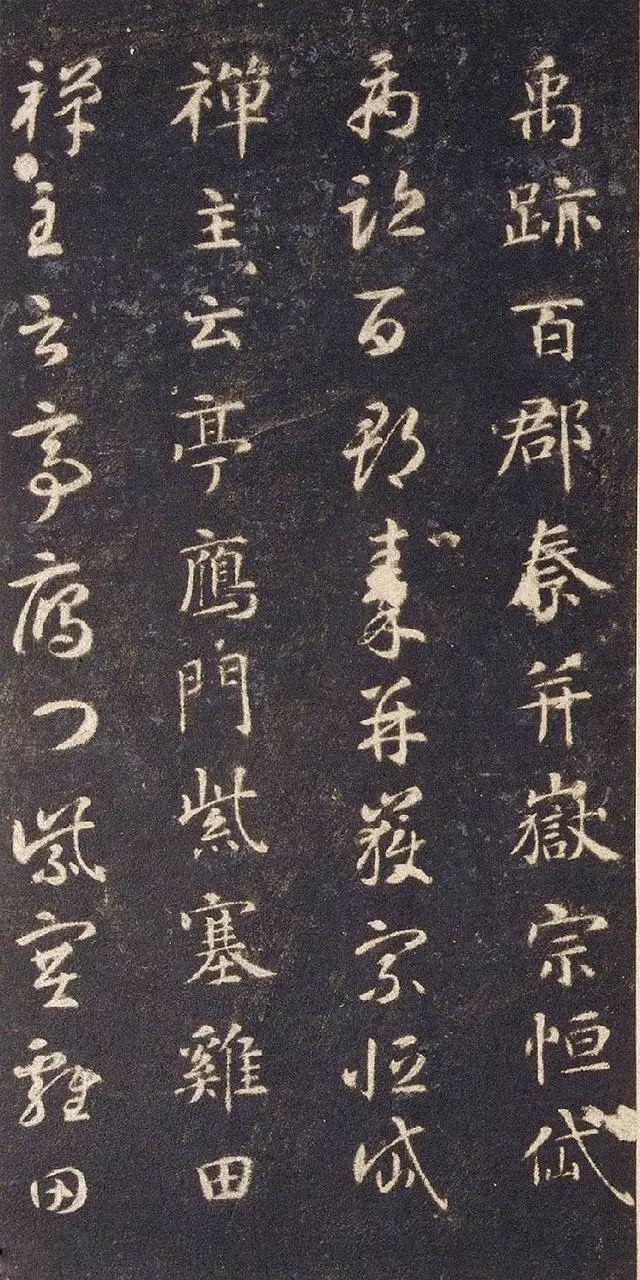 禹跡百郡秦并嶽宗恒岱
禹跡百郡秦并嶽宗恒岱
禪主云亭鴈門紫塞雞田
禪主云亭鴈門紫塞雞田